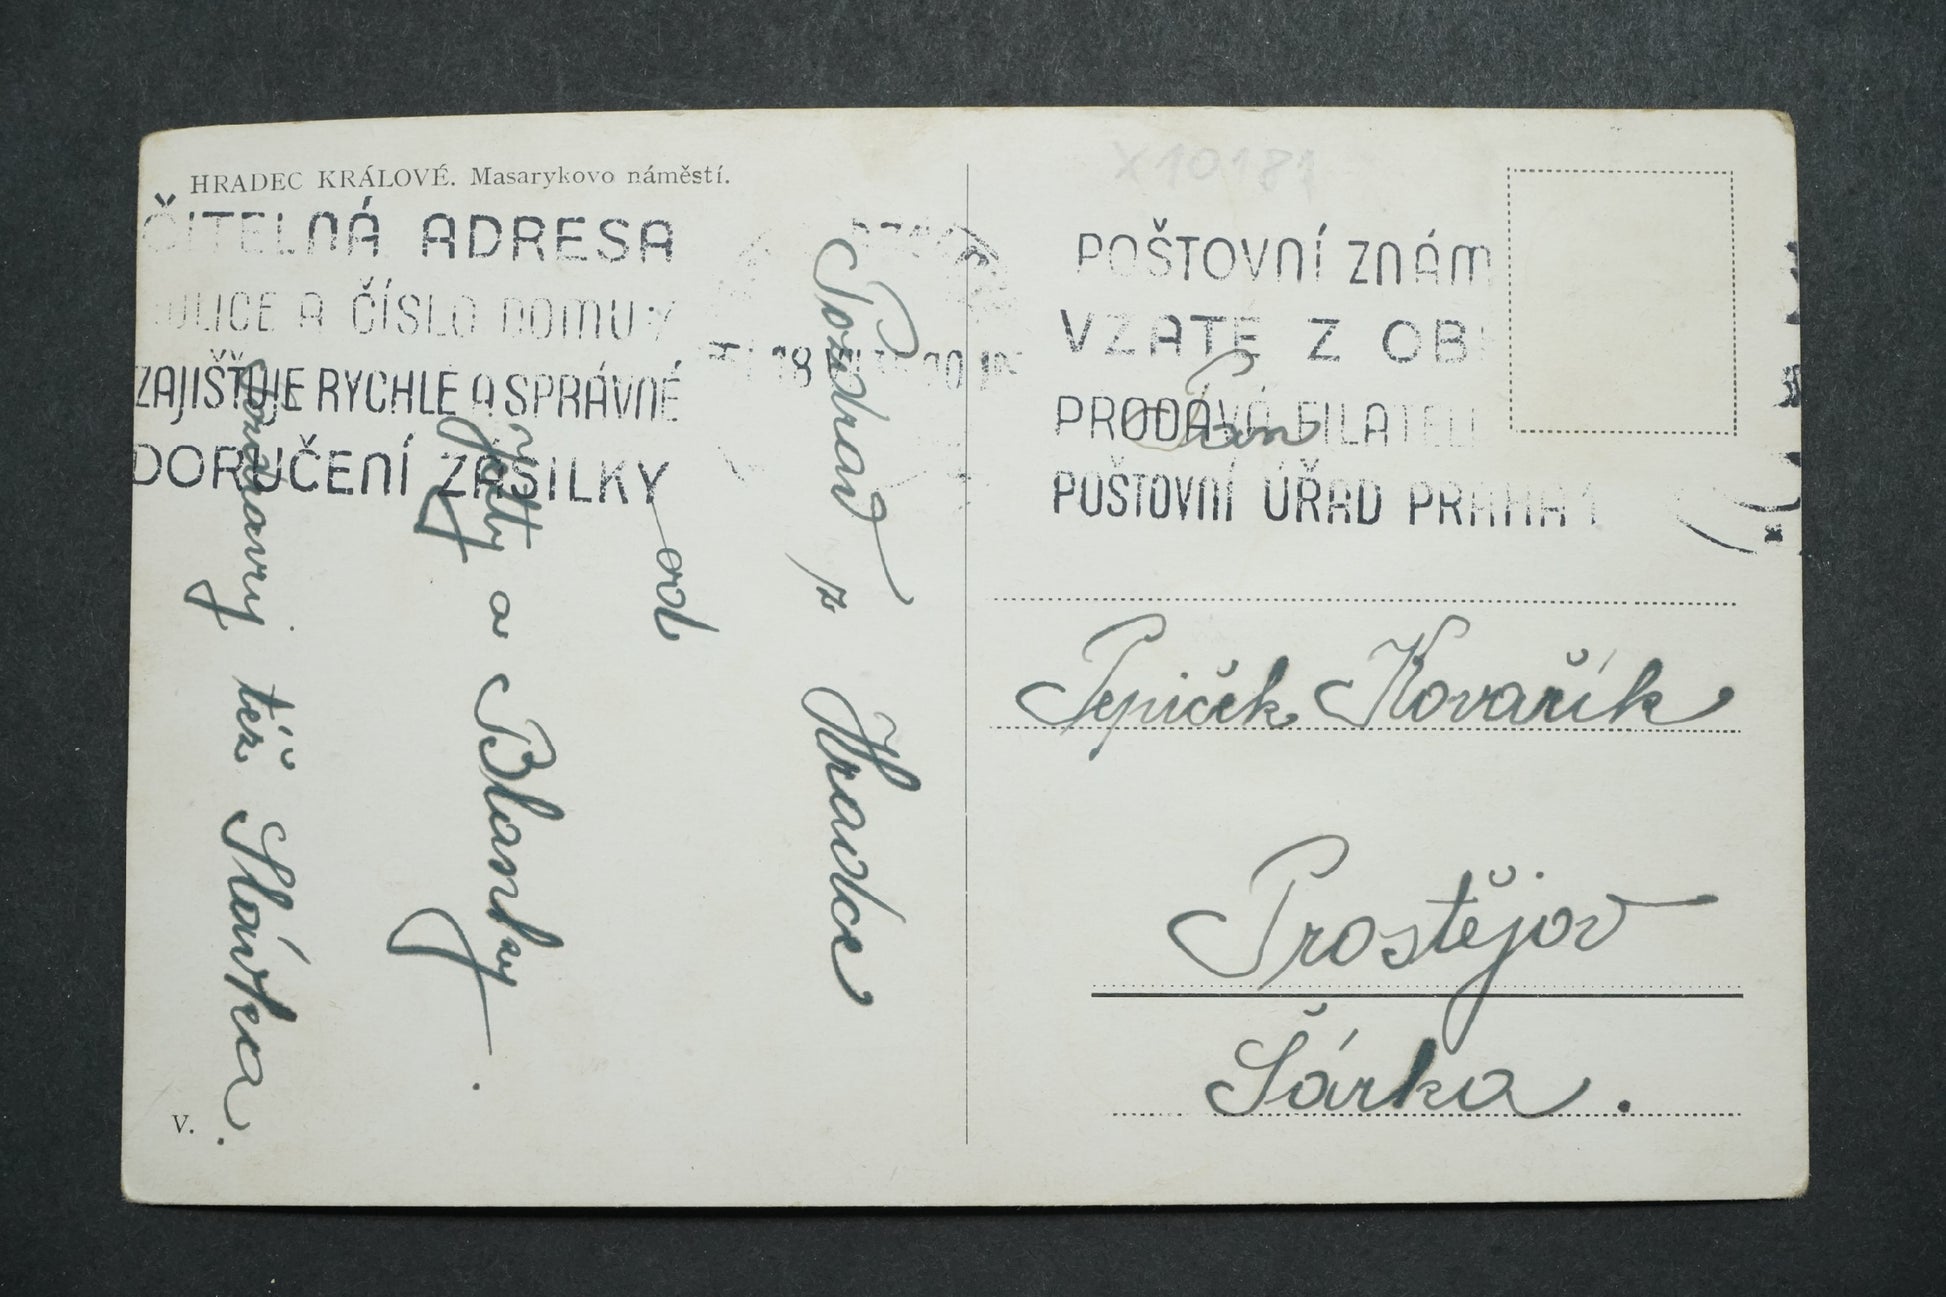 HRADEC KRÁLOVÉ. Masarykovo náměstí.
ČITELNÁ ADRESA
ULICE A ČÍSLO DOMU
ZAJIŠŤUJE RYCHLÉ A SPRÁVNÉ
DORUČENÍ ZÁSILKY
X10181
POŠTOVNÍ ZNÁM
VZATÉ Z OB
PRODÁVÁ FILATELI
POŠTOVNÍ ÚŘAD PRAHA 1
Pozdrav z Hradce
od
Jitky a Blanky.
Pozdravuji též Slávka.
Pan
Pepiček Kovařík
Prostějov
Šárka.
V.